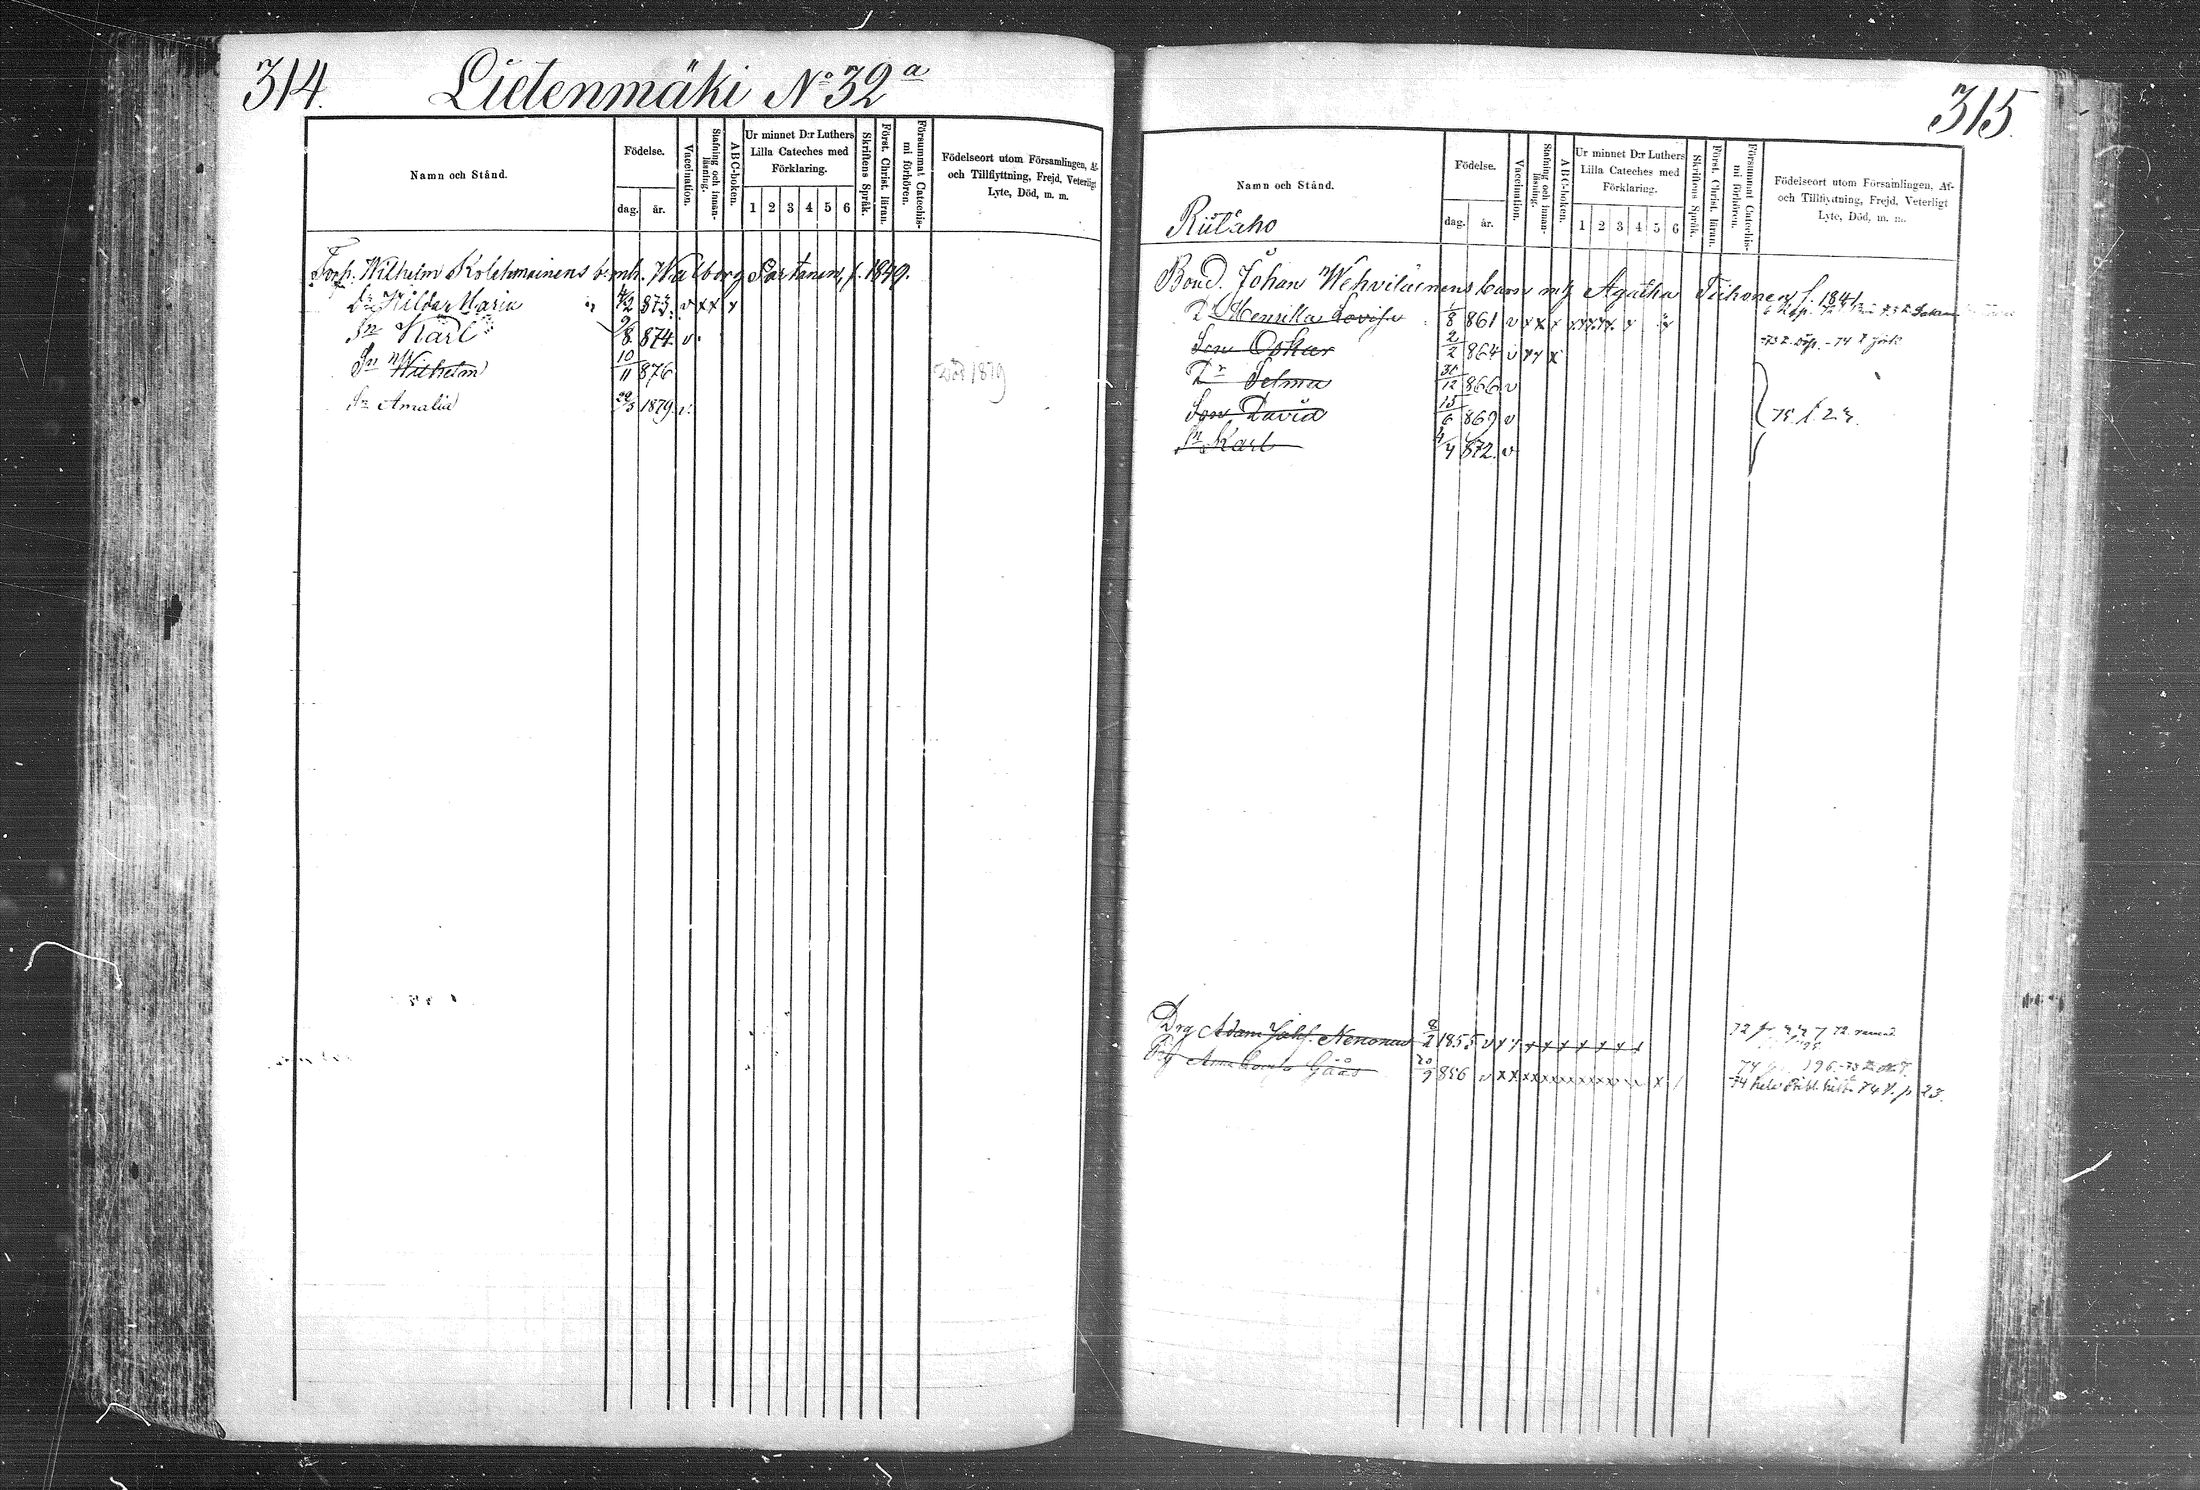 314.
Lietenmäki No 32a
Namn och Stånd.
Födelse.
dag.
år.
Vaccination.
Stafning och innan-
läsning.
ABC-boken.
Ur minnet D:r Luthers
Lilla Cateches med
Förklaring.
1 2 3 4 5 6
Skriftens Språk.
Först. Christ. läran.
Försummat Catechis-
mi förhören.
Födelseort utom Församlingen, Af-
och Tillflyttning, Frejd, Veterligt
Lyte, Död, m. m.
Torp. Wilhelm Kolehmainens b. mh. Walborg Partanen, f. 1849.
Dr Hilda Maria 4/2 873. v x x x
Sn Karl 9/8 874. v.
Sn Wilhelm 10/11 876 Död 1879
Amalia 29/5 1879. v.
315.
Namn och Stånd.
Födelse.
dag.
år.
Vaccination.
Stafning och innan-
läsning.
ABC-boken.
Ur minnet D:r Luthers
Lilla Cateches med
Förklaring.
1 2 3 4 5 6
Skriftens Språk.
Först. Christ. läran.
Försummat Catechis-
mi förhören.
Födelseort utom Församlingen, Af-
och Tillflyttning, Frejd, Veterligt
Lyte, Död, m. m.
Riilaho
Bond. Johan Wehviläinens barn mh Agatha Tiihonen f. 1841
Dr Henrika Lovisa 1/8 861 v x x x
Son Oskar 2/2 864 v x x x
Dr Selma 31/12 866 v
Son David 15/6 869 v 75. f. 23.
Sn Karl 4/4 872. v
Drg Adam Nenonen 8/2 1855 v x x x x x x x x x
Gåås 20/9 856 v x x x x x x x x x